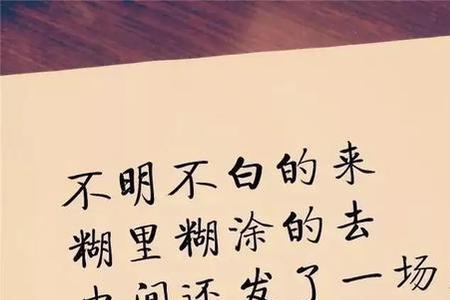 不明不白的来
糊里糊涂的去
中间还发了一场